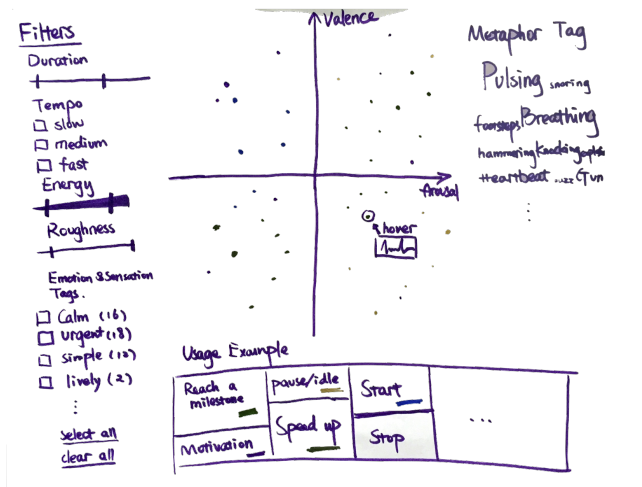 Filters
Duration
Tempo
slow
medium
fast
Energy
Roughness
Emotion & Sensation
Tags.
Calm (16)
urgent (18)
simple (12)
lively (2)
⋮
select all
clear all
Valence
Arousal
hover
Metaphor Tag
Pulsing snoring
footsteps Breathing
hammering Knocking
Heartbeat Gun
⋮
Usage Example
Reach a
milestone
Motivation
pause/idle
Speed up
Start
Stop
...